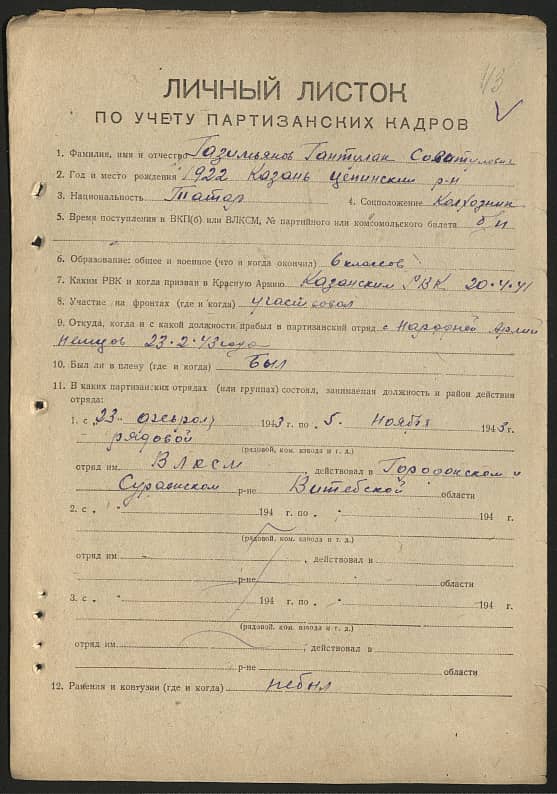 43
ЛИЧНЫЙ ЛИСТОК
ПО УЧЕТУ ПАРТИЗАНСКИХ КАДРОВ
1. Фамилия, имя и отчество Газимьянов
2. Год и место рождения 1922 Казань р-н
3. Национальность Татар 4. Соцположение Колхозник
5. Время поступления в ВКП(б) или ВЛКСМ, № партийного или комсомольского билета б/п
6. Образование: общее и военное (что и когда окончил) 6 классов
7. Каким РВК и когда призван в Красную Армию Казанским РВК 20·4·41
8. Участие на фронтах (где и когда) участвовал
9. Откуда, когда и с какой должности прибыл в партизанский отряд с Народной Армии
немцов 23·2·43 года
10. Был ли в плену (где и когда) Был
11. В каких партизанских отрядах (или группах) состоял, занимаемая должность и район действия
отряда:
1. с „23" 1943 г. по „5" Ноября 1943 г.
рядовой
(рядовой, ком. взвода и т. д.)
отряд им. ВЛКСМ действовал в Городокском и
Суражском р-не Витебской области
2. с „ " 194 г. по „ " 194 г.
(рядовой, ком. взвода и т. д.)
отряд им. действовал в
р-не области
3. с „ " 194 г. по „ " 194 г.
(рядовой, ком. взвода и т. д.)
отряд им. действовал в
р-не области
12. Ранения и контузии (где и когда) небыл